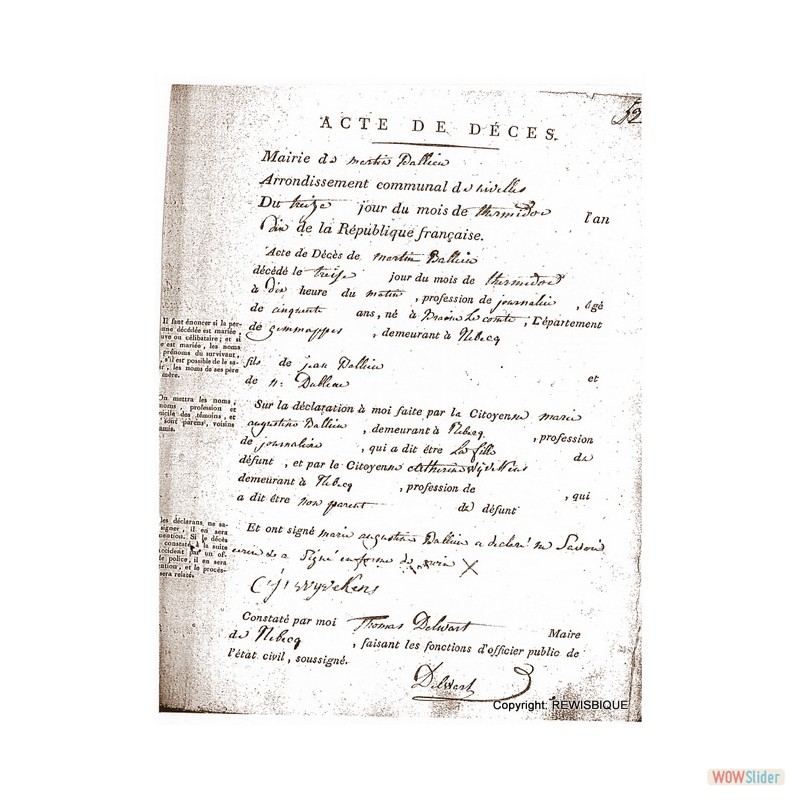 52
ACTE DE DÉCES.
Mairie de martin Dallieu
Arrondissement communal de nivelles
Du treize jour du mois de thermidor l'an
dix de la République française.
Acte de Décès de martin Dallieu
décédé le treize jour du mois de thermidor
à dix heure du matin, profession de journalier, âgé
de cinquante ans, né à Braine le comte, Département
de gemmappes, demeurant à Rebecq
fils de jean Dallieu et
de n: Dallieu
Sur la déclaration à moi faite par la Citoyenne marie
augustine Dallieu, demeurant à Rebecq, profession
de journalière, qui a dit être la fille de
défunt, et par le Citoyenne catherine Wydekens
demeurant à Rebecq, profession de , qui
a dit être non parent de défunt
Et ont signé marie augustine Dallieu a declaré ne Savoir
a Signé en forme de X
Constaté par moi Thomas Delwart Maire
de Rebecq, faisant les fonctions d'officier public de
l'état civil, soussigné.
Delwart
Il faut énoncer si la per-
nne décédée est mariée,
uve ou célibataire; et si
e est mariée, les noms
prénoms du survivant,
s'il est possible de le sa-
ir, les noms de ses père
mère.
On mettra les noms,
noms, profession et
icile des témoins, et
sont parens, voisins
amis.
les déclarans ne sa-
signer, il en sera
mention. Si le décès
constaté à la suite
accident par un of-
de police, il en sera
ention, et le procès-
sera relaté.
Copyright: REWISBIQUE
WOWSlider